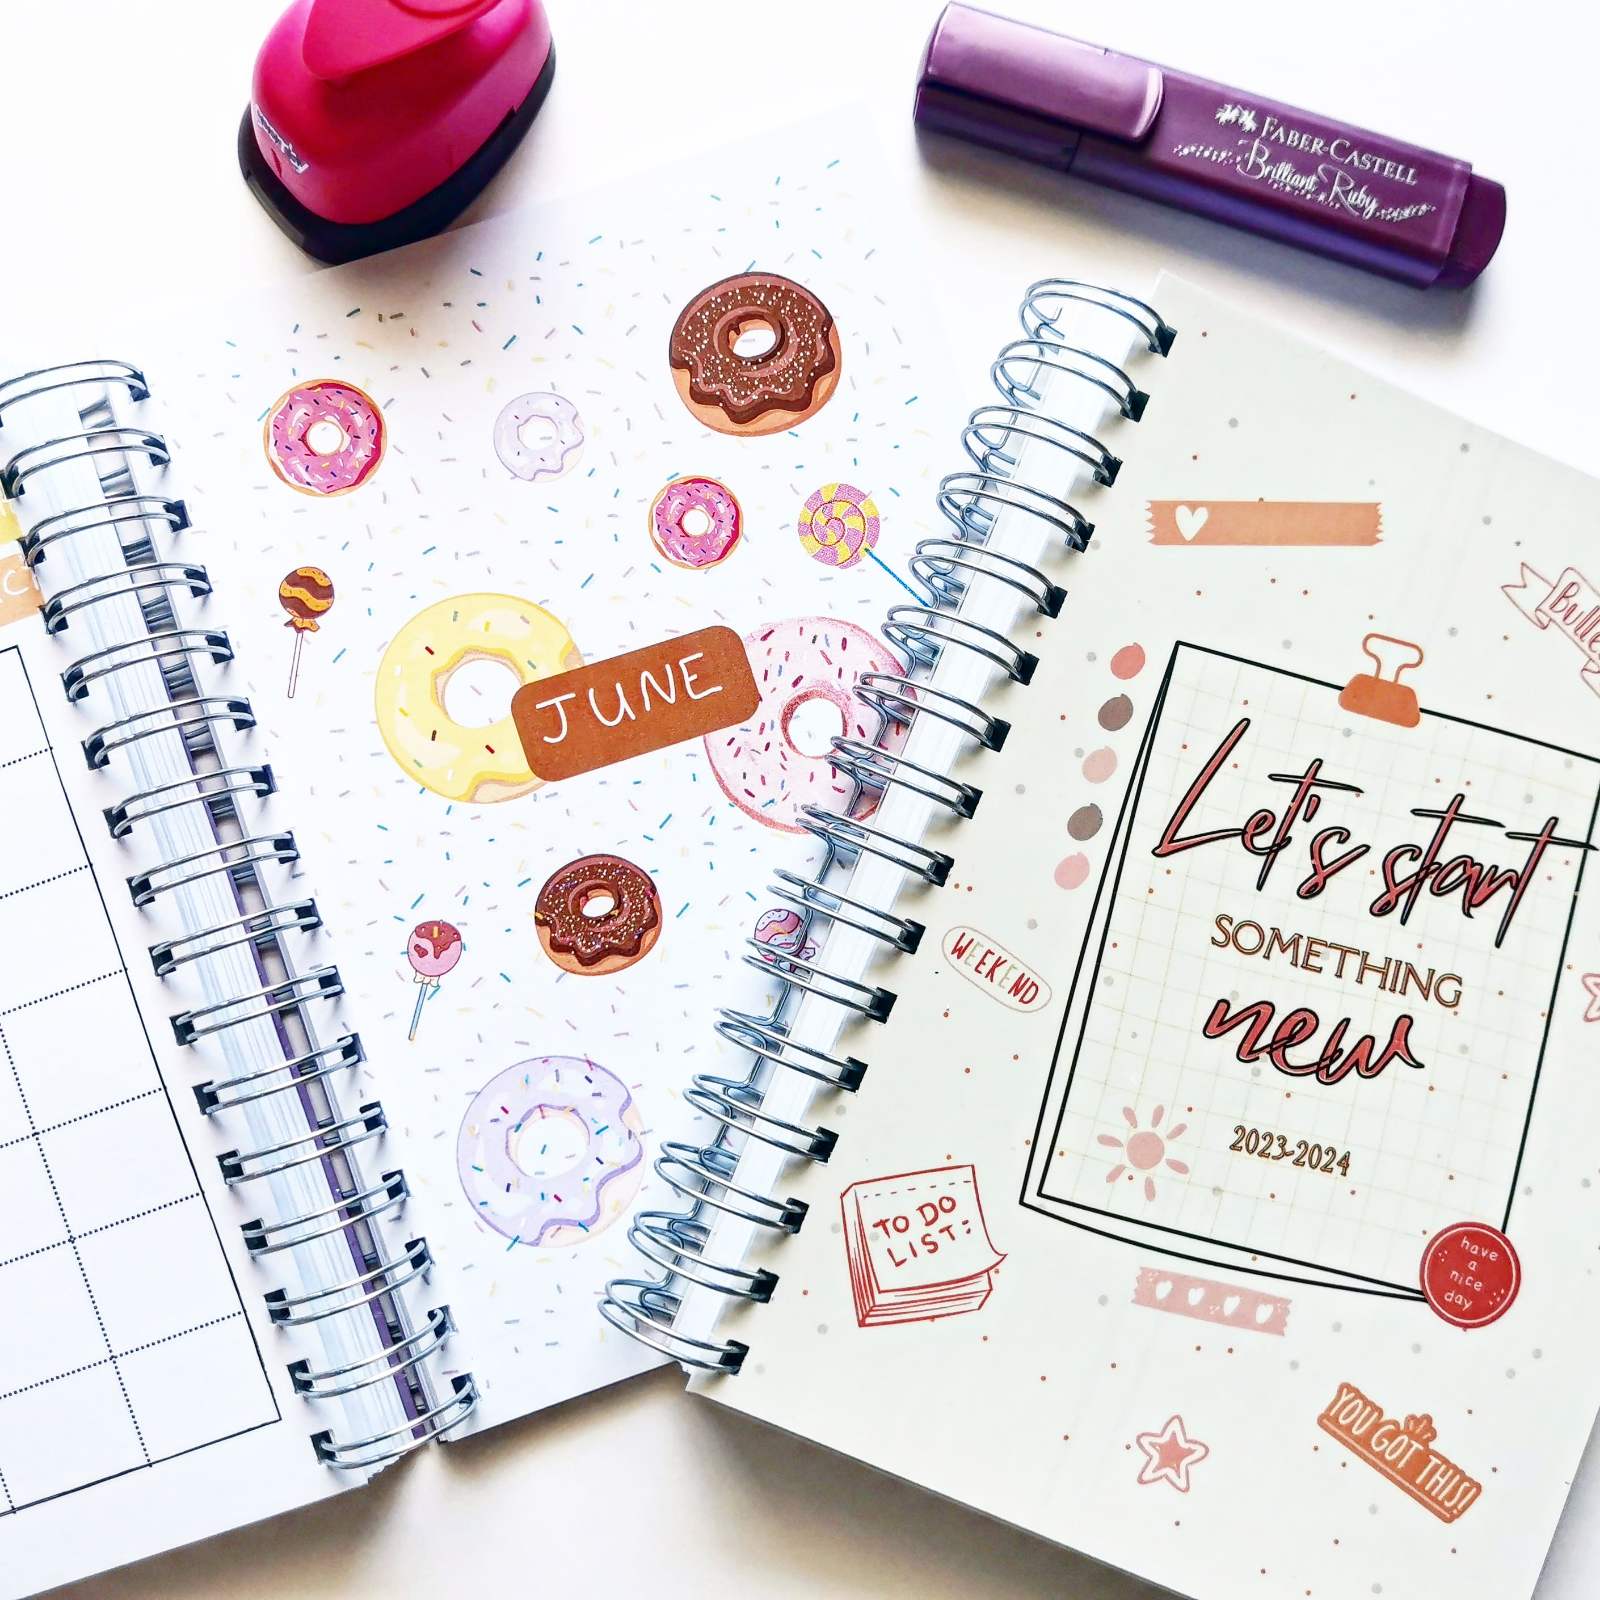 FABER-CASTELL
Brilliant Ruby
JUNE
Let's start
SOMETHING
new
2023-2024
WEEKEND
TO DO
LIST:
have
a
nice
day
YOU GOT THIS!